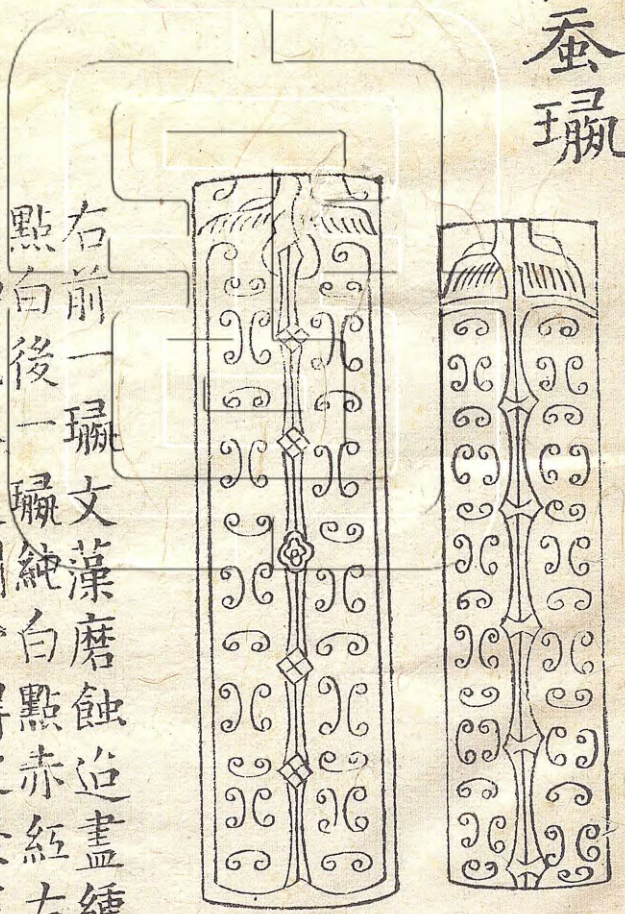 蚕璏
右前一璏文藻磨蝕迨盡
點白後一璏純白點赤紅